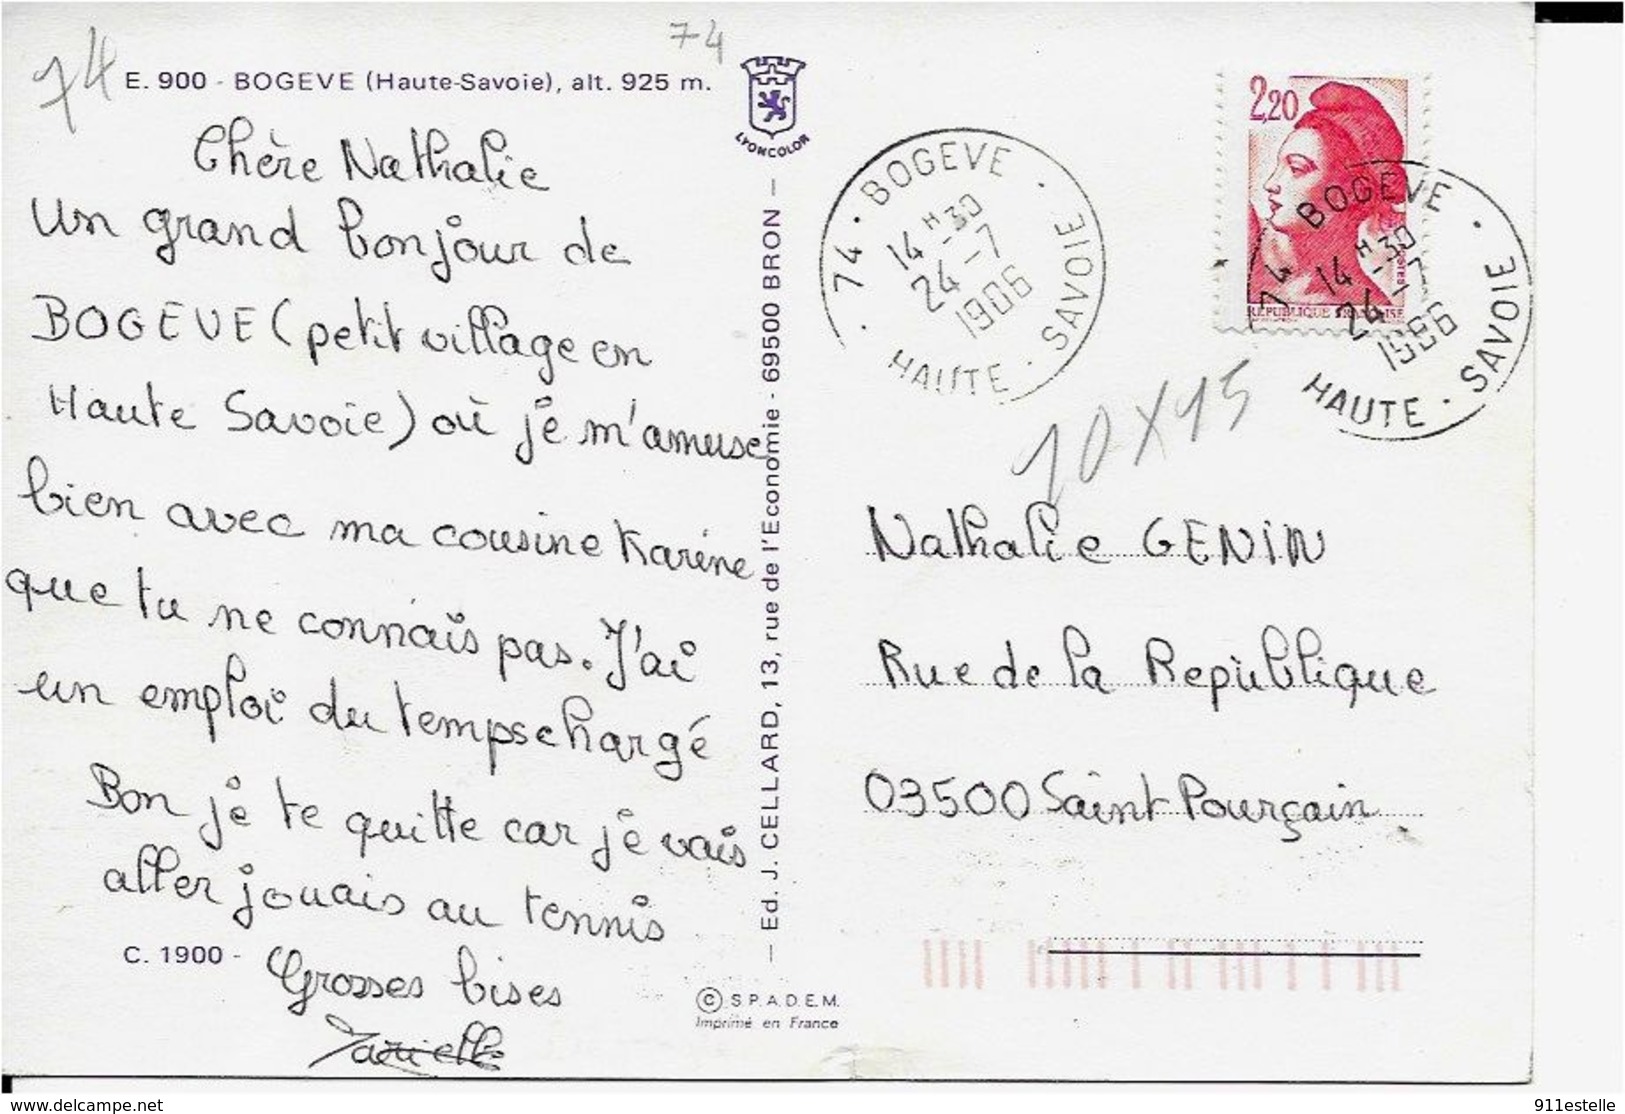 74
74
E. 900 - BOGEVE (Haute-Savoie), alt. 925 m.
LYONCOLOR
Chère Nathalie
Un grand bonjour de
BOGEVE (petit village en
Haute Savoie) où je m'amuse
bien avec ma cousine Karine
que tu ne connais pas. J'ai
un emploi du temps chargé
Bon je te quitte car je vais
aller jouais au tennis
Grosses bises
C. 1900 -
— Ed. J. CELLARD, 13, rue de l'Economie - 69500 BRON —
© S.P.A.D.E.M.
Imprimé en France
74 · BOGEVE ·
14 H 30
24 -7
1986
HAUTE · SAVOIE
2,20
POSTES
REPUBLIQUE FRANÇAISE
74 BOGEVE ·
14 H 30
24 -7
1986
HAUTE · SAVOIE
10 X 15
Nathalie GENIN
Rue de la Republique
03500 Saint Pourçain
www.delcampe.net
911estelle